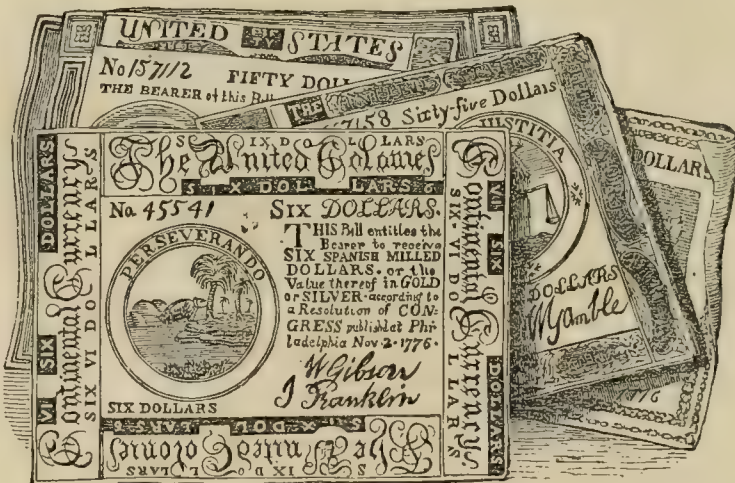 UNITED STATES
No 157112
FIFTY DOLL
THE BEARER of this Bill
THE
7158 Sixty-five Dollars
JUSTITIA
DOLLARS
DOLLARS
W Gamble
SIX DOLLARS
The United Colonies
SIX DOLLARS 6
No. 45541
SIX DOLLARS.
PERSEVERANDO
THIS Bill entitles the
Bearer to receive
SIX SPANISH MILLED
DOLLARS. or the
Value thereof in GOLD
or SILVER according to
a Resolution of CON-
GRESS publish'd at Phi-
ladelphia Nov. 2. 1776.
W Gibson
J Franklin
SIX DOLLARS
SIX DOLLARS
The United Colonies
SIX DOLLARS
VI SIX DOLLARS.
Continental Currency
SIX VI DOLLARS
Continental Currency
SIX VI DOLLARS
VI SIX DOLLARS